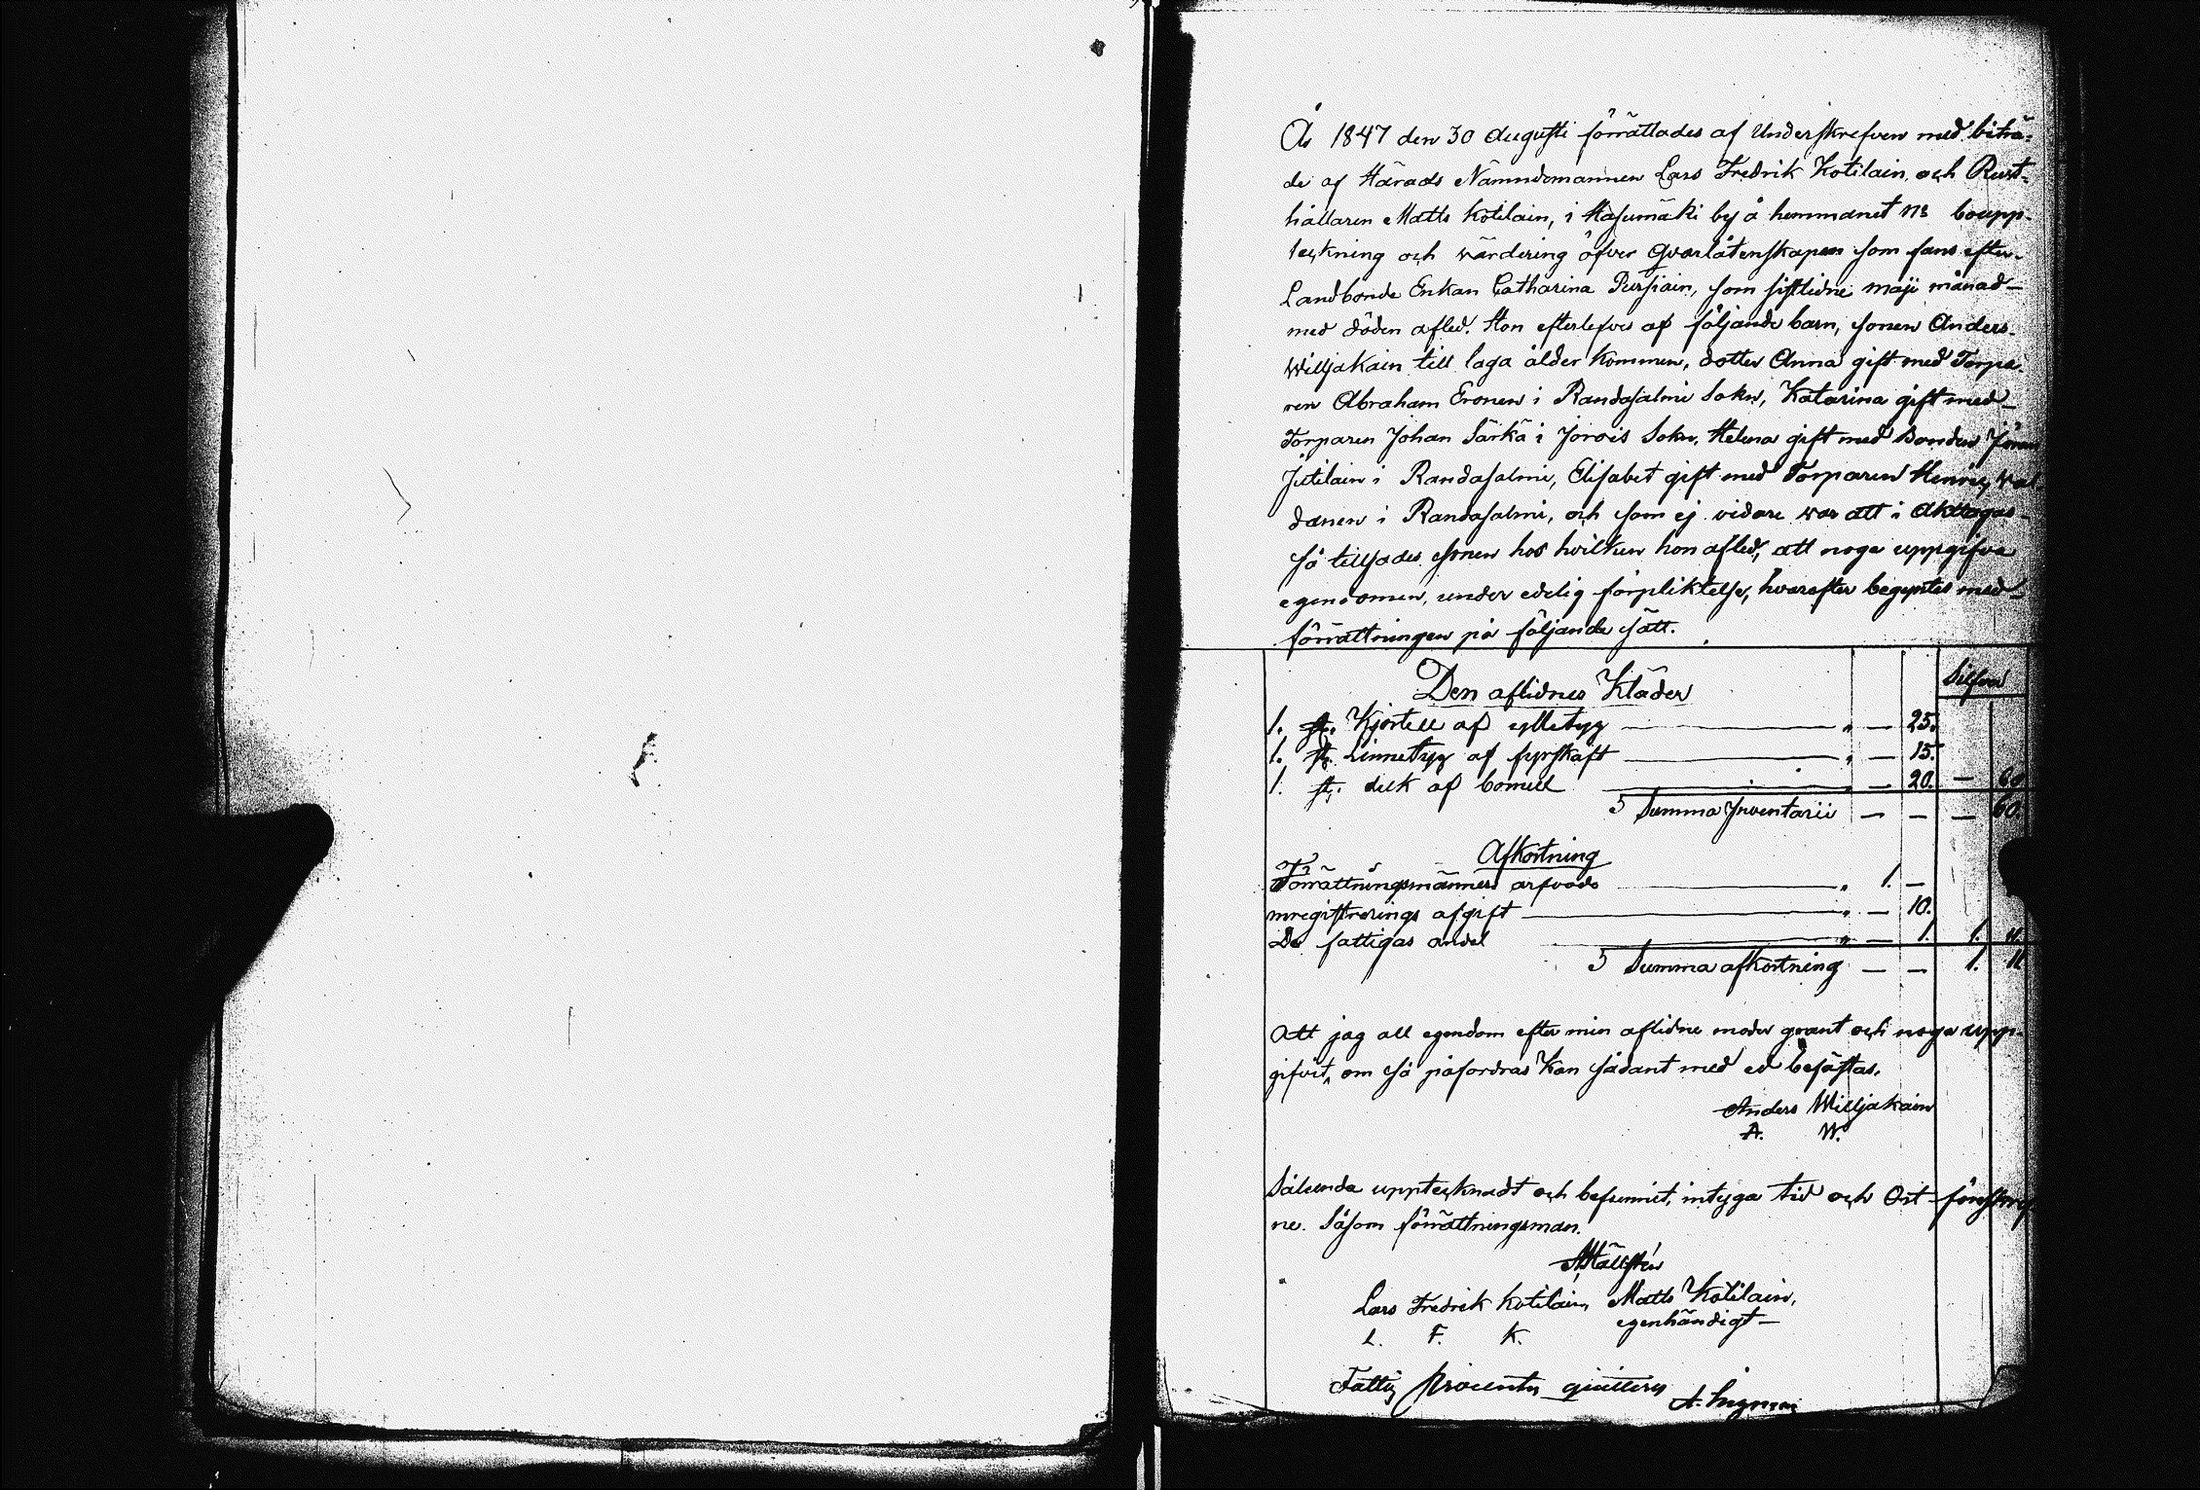 År 1847 den 30 Augusti förrättades af Underskrefven med biträ-
de af Härads Nämndemannen Lars Fredrik Kotilain, och Rust-
hållaren Matts Kotilain, i Hasumäki by å hemmanet N: 3 boupp-
teckning och värdering öfver Qvarlåtenskapen som fans efter
Landbonde Enkan Catharina Pursiain, som sistlidne maji månad
med döden afled. Hon efterlefves af följande barn, sonen Anders
Willjakain till laga ålder kommen, dotter Anna gift med Torpa-
ren Abraham Eronen i Randasalmi Sokn, Katarina gift med
Torparen Johan Särkä i Jorois Sokn, Helena gift med Bonden
Jutilain i Randasalmi, Elisabet gift med Torparen Henric Wal-
danen i Randasalmi, och som ej vidare war att i Akttagas
så tillsades sonen hos hvilken hon afled, att noga uppgifva
egendomen, under edelig förpliktelse, hvarefter begyntes med
förrättningen på följande sätt.
Silfver
Den aflidnes Kläder
1. st. Kjortell af ylletyg " — 25.
1. st. Linnetyg af fyrskaft " — 15.
1. st. duk af bomull " — 20. — 60.
S Summa Inventarii — — — 60.
Afkortning
Förrättningsmännens arfvode " 1. —
inregistrerings afgift " — 10.
De fattigas andel " — 1. 1. 11.
S Summa afkortning — — 1. 11
Att jag all egendom efter min aflidne moder grant och noga upp-
gifvit, om så påfordras kan sådant med ed befästas.
Anders Willjakain
A. W.
Sålunda upptecknadt och befunnit, intyga tid och Ort förskref-
ne. Såsom förrättningsman.
Hällsten
Lars Fredrik Kotilain, Matts Kotilain,
egenhändigt —
L. F. K.
Fattig Procenten quitteras